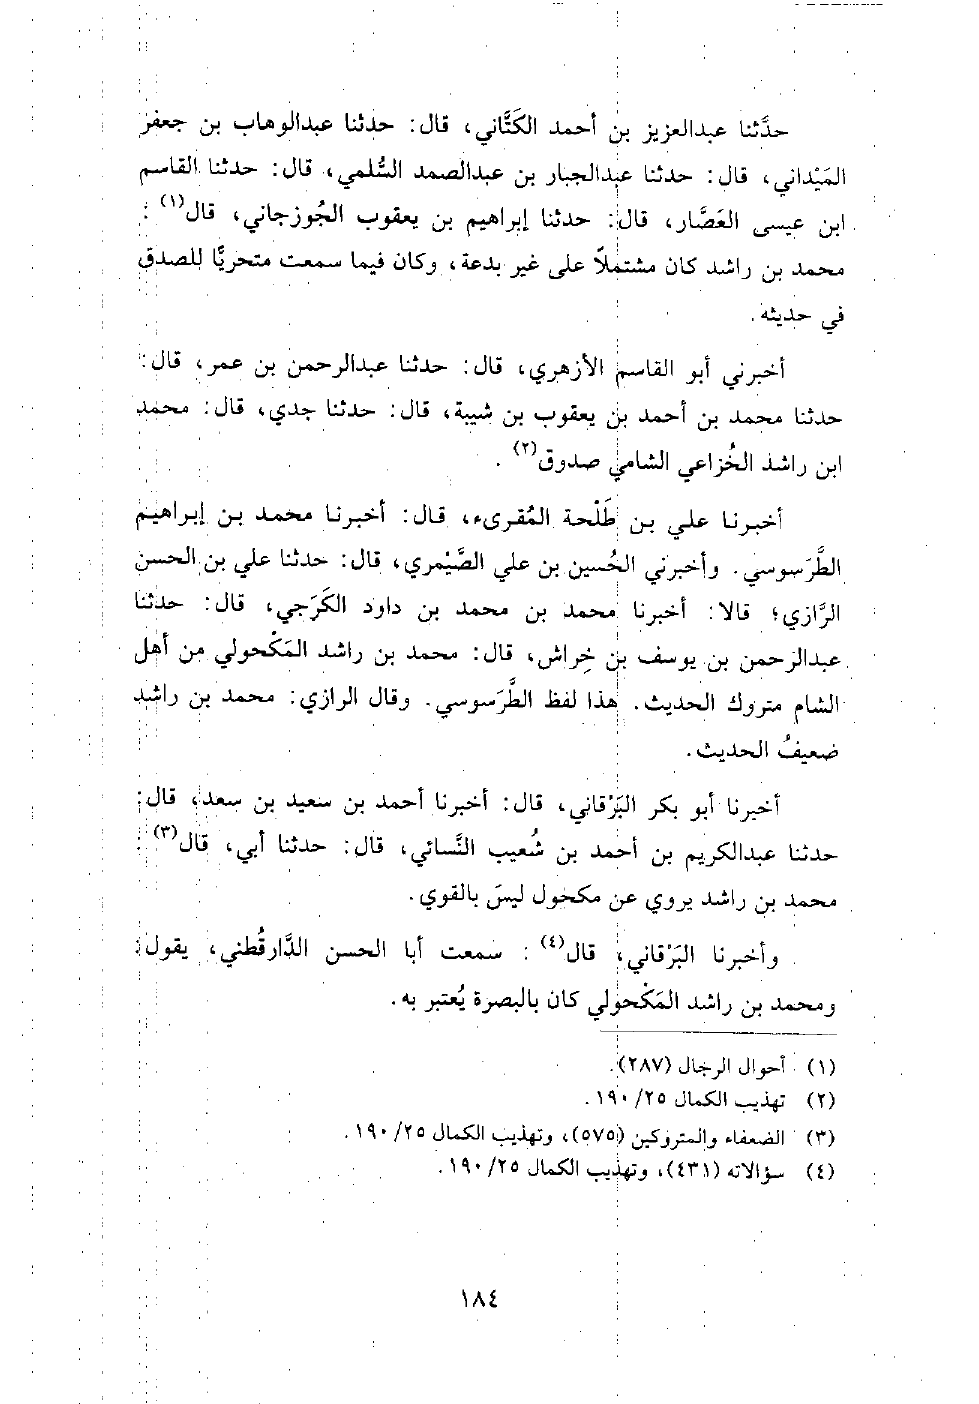 حدَّثنا عبدالعزيز بن أحمد الكَتَّاني، قال: حدثنا عبدالوهاب بن جعفر
المَيْداني، قال: حدثنا عبدالجبار بن عبدالصمد السُّلمي، قال: حدثنا القاسم
ابن عيسى العَصَّار، قال: حدثنا إبراهيم بن يعقوب الجُوزجاني، قال(١):
محمد بن راشد كان مشتملاً على غير بدعة، وكان فيما سمعت متحريًّا للصدق
في حديثه.
أخبرني أبو القاسم الأزهري، قال: حدثنا عبدالرحمن بن عمر، قال:
حدثنا محمد بن أحمد بن يعقوب بن شيبة، قال: حدثنا جدي، قال: محمد
ابن راشد الخُزاعي الشامي صدوق(٢).
أخبرنا علي بن طَلْحة المُقرىء، قال: أخبرنا محمد بن إبراهيم
الطَّرَسوسي. وأخبرني الحُسين بن علي الصَّيْمري، قال: حدثنا علي بن الحسن
الرَّازي؛ قالا: أخبرنا محمد بن محمد بن داود الكَرَجي، قال: حدثنا
عبدالرحمن بن يوسف بن خِراش، قال: محمد بن راشد المَكْحولي من أهل
الشام متروك الحديث. هذا لفظ الطَّرَسوسي. وقال الرازي: محمد بن راشد
ضعيفُ الحديث.
أخبرنا أبو بكر البَرْقاني، قال: أخبرنا أحمد بن سعيد بن سعد، قال:
حدثنا عبدالكريم بن أحمد بن شُعيب النَّسائي، قال: حدثنا أبي، قال(٣):
محمد بن راشد يروي عن مكحول ليسَ بالقوي.
وأخبرنا البَرْقاني، قال(٤): سمعت أبا الحسن الدَّارقُطني، يقول:
ومحمد بن راشد المَكْحولي كان بالبصرة يُعتبر به.
(١) أحوال الرجال (٢٨٧).
(٢) تهذيب الكمال ٢٥/ ١٩٠.
(٣) الضعفاء والمتروكين (٥٧٥)، وتهذيب الكمال ٢٥/ ١٩٠.
(٤) سؤالاته (٤٣١)، وتهذيب الكمال ٢٥/ ١٩٠.
١٨٤